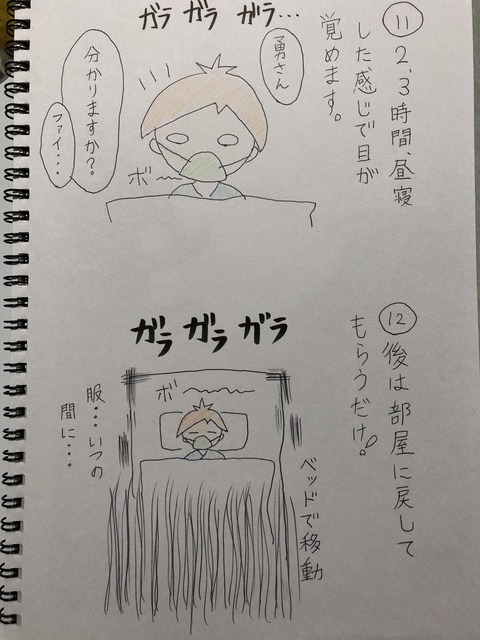 ⑪2、3時間、昼寝
した感じで目が
覚めます。
ガラ ガラ ガラ...
勇さん
分かりますか?
ファイ...
ボ〜
⑫後は部屋に戻して
もらうだけ!
ガラ ガラ ガラ
ボ〜〜
ベッドで移動
服...いつの
間に...